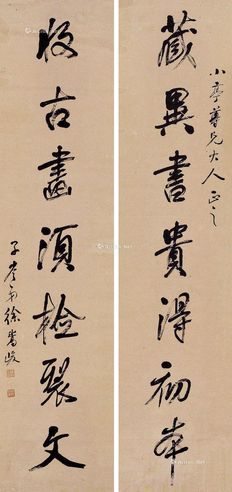 小亭尊兄大人正之
藏異書貴得初本
收古畫須檢裂文
子 弟徐